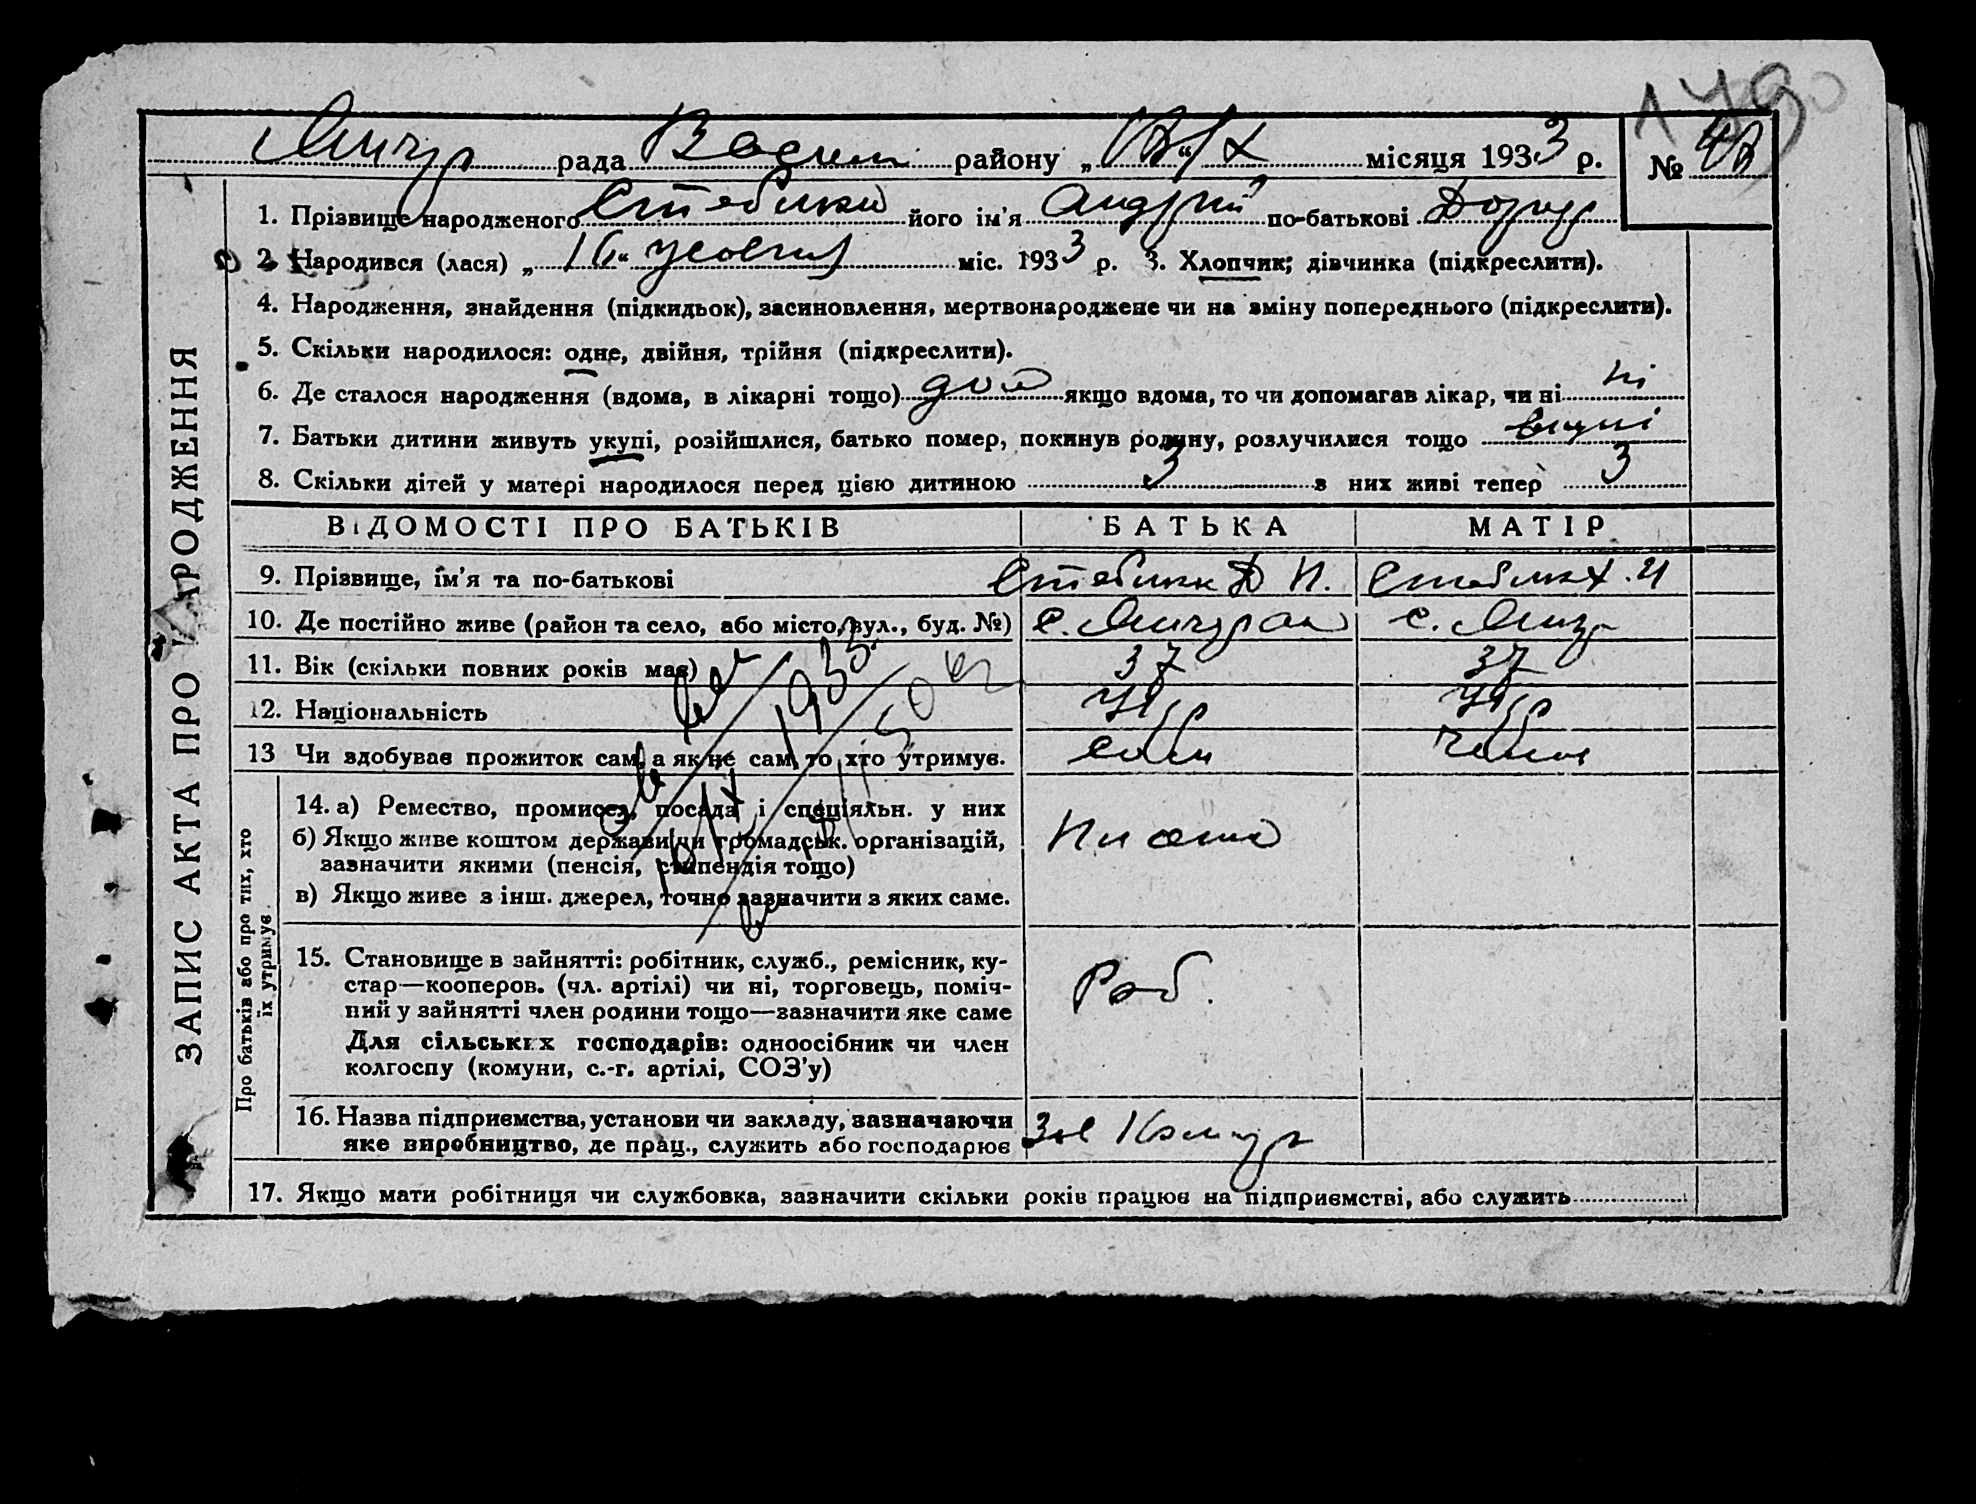 рада району „ “ місяця 1933 р. №
1. Прізвище народженого його ім'я Андрій по-батькові
2. Народився (лася) „16“ міс. 1933 р. 3. Хлопчик; дівчинка (підкреслити).
4. Народження, знайдення (підкидьок), засиновлення, мертвонароджене чи на зміну попереднього (підкреслити).
5. Скільки народилося: одне, двійня, трійня (підкреслити).
6. Де сталося народження (вдома, в лікарні тощо) дом якщо вдома, то чи допомагав лікар, чи ні ні
7. Батьки дитини живуть укупі, розійшлися, батько помер, покинув родину, розлучилися тощо вкупі
8. Скільки дітей у матері народилося перед цією дитиною 3 в них живі тепер 3
ЗАПИС АКТА ПРО НАРОДЖЕННЯ
ВІДОМОСТІ ПРО БАТЬКІВ БАТЬКА МАТІР
9. Прізвище, ім'я та по-батькові
10. Де постійно живе (район та село, або місто, вул., буд. №) с. с.
11. Вік (скільки повних років має) 37 37
12. Національність Укр Укр
13 Чи здобував прожиток сам, а як не сам, то хто утримує.
1935
Про батьків або про тих, хто їх утримує.
14. а) Ремество, промисел, посада і спеціяльн. у них
б) Якщо живе коштом держави чи громадськ. організацій,
зазначити якими (пенсія, стипендія тощо)
в) Якщо живе з інш. джерел, точно зазначити з яких саме.
15. Становище в зайнятті: робітник, служб., ремісник, ку-
стар—кооперов. (чл. артілі) чи ні, торговець, поміч-
ний у зайнятті член родини тощо—зазначити яке саме
Роб.
Для сільських господарів: одноосібник чи член
колгоспу (комуни, с.-г. артілі, СОЗ'у)
16. Назва підприємства, установи чи закладу, зазначаючи
яке виробництво, де прац., служить або господарює
17. Якщо мати робітниця чи службовка, зазначити скільки років працює на підприємстві, або служить